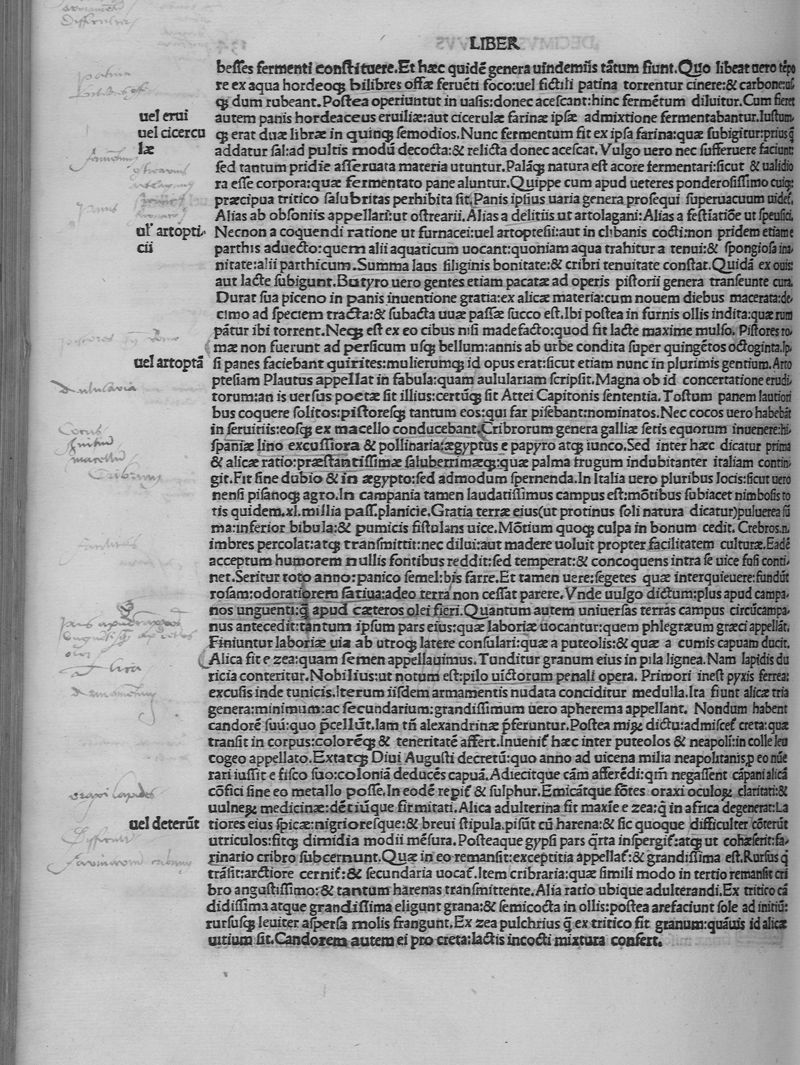 LIBER
besses fermenti constituere.Et hæc quidē genera uindemiis tātum fiunt.Quo libeat uero tēpo
re ex aqua hordeoqȝ bilibres offæ feruēti foco:uel fictili patina torrentur cinere:& carbone:usqȝ
qȝ dum rubeant.Postea operiuntut in uasis:donec acescant:hinc fermētum diluitur.Cum fieret
uel erui
autem panis hordeaceus eruiliæ:aut cicerulæ farinæ ipsæ admixtione fermentabantur.Iustum
uel cicercu
qȝ erat duæ libræ in quinqȝ semodios.Nunc fermentum fit ex ipsa farina:quæ subigitur:priusq̃
læ
addatur sal:ad pultis modū decocta:& relicta donec acescat.Vulgo uero nec sufferuere faciunt
sed tantum pridie asseruata materia utuntur.Palāqȝ natura est acore fermentari:sicut & ualidio
ra esse corpora:quæ fermentato pane aluntur.Quippe cum apud ueteres ponderosissimo cuiqȝ
præcipua tritico salubritas perhibita sit.Panis ipsius uaria genera prosequi superuacuum uidet̃.
Alias ab obsoniis appellari:ut ostrearii.Alias a delitiis ut artolagani:Alias a festiatiōe ut speustici.
ul' artopti
Necnon a coquendi ratione ut furnacei:uel artoptesii:aut in clibanis cocti:non pridem etiam e
cii
parthis aduecto:quem alii aquaticum uocant:quoniam aqua trahitur a tenui:& spongiosa ina
nitate:alii parthicum.Summa laus siliginis bonitate:& cribri tenuitate constat.Quidā ex ouis:
aut lacte subigunt.Butyro uero gentes etiam pacatæ ad operis pistorii genera transeunte cura.
Durat sua piceno in panis inuentione gratia:ex alicæ materia:cum nouem diebus macerata:de
cimo ad speciem tracta:& subacta uuæ passæ succo est.Ibi postea in furnis ollis indita:quæ rum
pātur ibi torrent.Neqȝ est ex eo cibus nisi madefacto:quod fit lacte maxime mulso. Pistores ro
mæ non fuerunt ad persicum usqȝ bellum:annis ab urbe condita super quingētos octoginta.Ip
uel artoptā
si panes faciebant quirites:mulierumqȝ id opus erat:sicut etiam nunc in plurimis gentium.Arto
ptesiam Plautus appellat in fabula:quam aululariam scripsit.Magna ob id concertatione erudi
torum:an is uersus poetæ sit illius:certūqȝ fit Attei Capitonis sententia.Tostum panem lautiori
bus coquere solitos:pistoresqȝ tantum eos:qui far pisebant:nominatos.Nec cocos uero habebāt
in seruitiis:eosqȝ ex macello conducebant.Cribrorum genera galliæ setis equorum inuenere:hi
spaniæ lino excussiora & pollinaria:ægyptus e papyro atqȝ iunco.Sed inter hæc dicatur prima
& alicæ ratio:præstantissimæ saluberrimæqȝ:quæ palma frugum indubitanter italiam contin
git.Fit sine dubio & in ægypto:sed admodum spernenda.In Italia uero pluribus locis:sicut uero
nensi pisanoqȝ agro.In campania tamen laudatissimus campus est:mōtibus subiacet nimbosis to
tis quidem.xl.millia pass̃.planicie.Gratia terræ eius(ut protinus soli natura dicatur)puluerea sū
ma:inferior bibula:& pumicis fistulans uice.Mōtium quoqȝ culpa in bonum cedit. Crebros.n.
imbres percolat:atqȝ transmittit:nec dilui:aut madere uoluit propter facilitatem culturæ.Eadē
acceptum humorem nullis fontibus reddit:sed temperat:& concoquens intra se uice fusi conti
net.Seritur toto anno:panico semel:bis farre.Et tamen uere:segetes quæ interquieuere:fundūt
rosam:odoratiorem satiua:adeo terra non cessat parere.Vnde uulgo dictum:plus apud campa
nos unguenti:q̃ apud cæteros olei fieri.Quantum autem uniuersas terras campus circūcampa
nus antecedit:tantum ipsum pars eius:quæ laboriæ uocantur:quem phlegræum græci appellāt.
Finiuntur laboriæ uia ab utroqȝ latere consulari:quæ a puteolis:& quæ a cumis capuam ducit.
Alica fit e zea:quam semen appellauimus.Tunditur granum eius in pila lignea.Nam lapidis du
ricia conteritur.Nobilius:ut notum est:pilo uictorum penali opera. Primori inest pyxis ferrea:
excussis inde tunicis.Iterum iisdem armamentis nudata conciditur medulla.Ita fiunt alicæ tria
genera:minimum:ac secundarium:grandissimum uero apherema appellant. Nondum habent
candorē suū:quo p̄cellūt.Iam tn̄ alexandrinæ p̄feruntur.Postea miꝝ dictu:admiscet̃ creta:quæ
transit in corpus:colorēqȝ & teneritatē affert.Inuenit̃ hæc inter puteolos & neapoli:in colle leu
cogeo appellato.Extatqȝ Diui Augusti decretū:quo anno ad uicena milia neapolitanis,p eo nūe
rari iussit e fisco suo:coloniā deducēs capuā.Adiecitque cām afferēdi:qm̄ negassent cāpani alicā
cōfici sine eo metallo posse.In eodē repit̃ & sulphur.Emicātque fōtes oraxi oculoꝝ claritati:&
uulneꝝ medicinæ:dētiūque firmitati.Alica adulterina fit maxie e zea:q̄ in africa degenerat:La
uel deterūt
tiores eius spicæ:nigrioresque:& breui stipula.pisūt cū harena:& sic quoque difficulter cōterūt
utriculos:fitqȝ dimidia modii mēsura.Posteaque gypsi pars q̄rta inspergit̃:atqȝ ut cohæserit:fa
rinario cribro subcernunt.Quæ in eo remansit:exceptitia appellat̃:& grandissima est.Rursus q̄
trāsit:arctiore cernit̃:& secundaria uocat̃.Item cribraria:quæ simili modo in tertio remansit cri
bro angustissimo:& tantum harenas transmittente.Alia ratio ubique adulterandi.Ex tritico cā
didissima atque grandissima eligunt grana:& semicocta in ollis:postea arefaciunt sole ad initiū:
rursusqȝ leuiter aspersa molis frangunt.Ex zea pulchrius q̃ ex tritico fit granum:quāuis id alicæ
uitium sit.Candorem autem ei pro creta:lactis incocti mixtura confert.